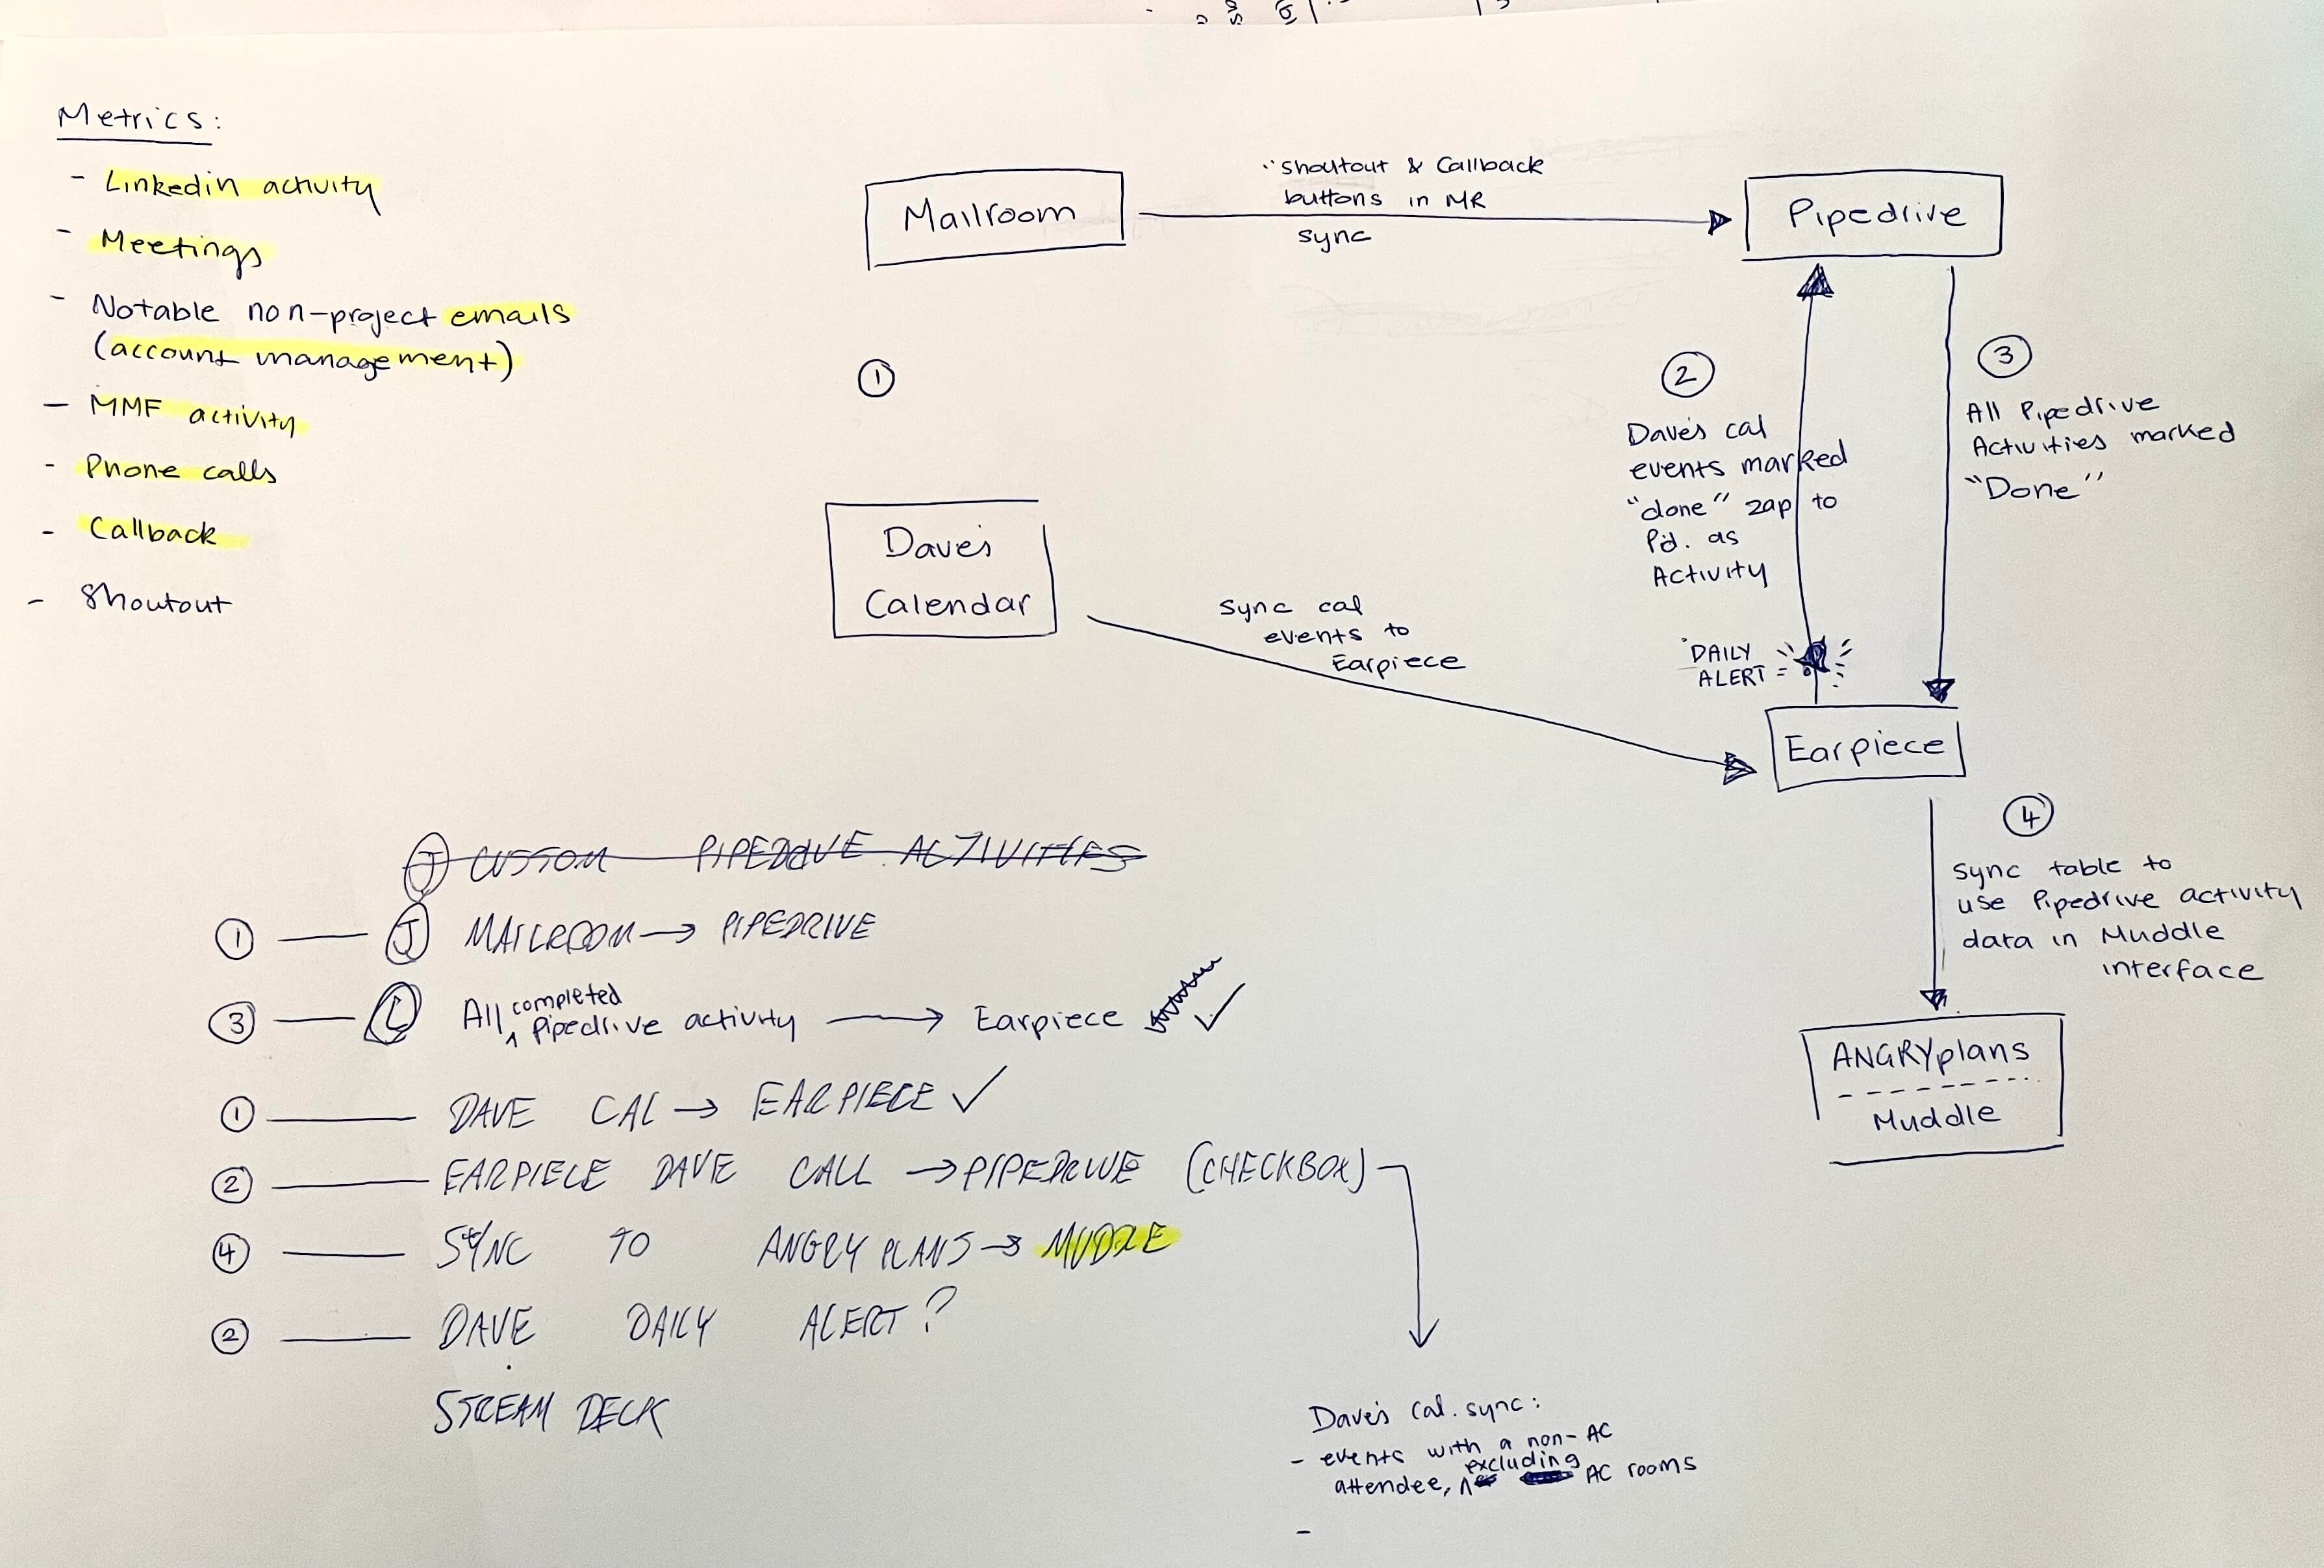 Metrics:
- Linkedin activity
- Meetings
- Notable non-project emails
(account management)
- MMF activity
- Phone calls
- Callback
- Shoutout
Mailroom
"Shoutout & Callback
buttons in MR
sync
Pipedrive
①
Dave's
Calendar
sync cal
events to
Earpiece
②
Dave's cal
events marked
"done" zap to
Pd. as
Activity
DAILY
ALERT =
③
All Pipedrive
Activities marked
"Done"
Earpiece
④
sync table to
use Pipedrive activity
data in Muddle
interface
ANGRYplans
Muddle
J CUSTOM PIPEDRIVE ACTIVITIES
① — J MAILROOM → PIPEDRIVE
③ — L All completed Pipedrive activity → Earpiece ✓
① — DAVE CAL → EARPIECE ✓
② — EARPIECE DAVE CALL → PIPEDRIVE (CHECKBOX)
④ — SYNC TO ANGRY PLANS → MUDDLE
② — DAVE DAILY ALERT?
STREAM DECK
Dave's Cal. sync:
- events with a non-AC
attendee, excluding AC rooms
-